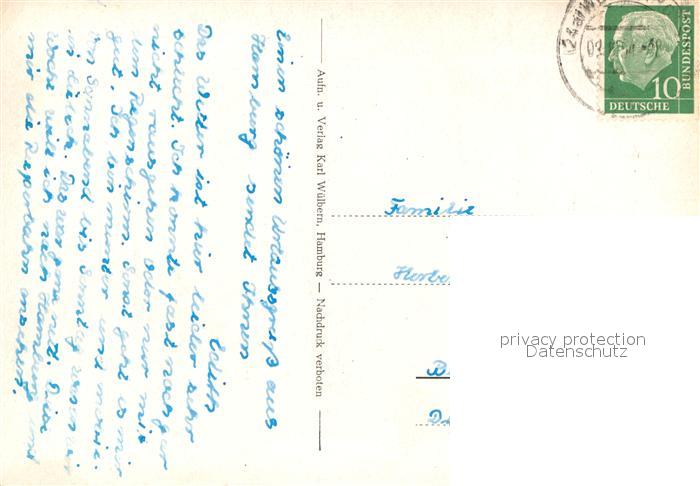 Einen schönen Urlaubsgruß aus
Hamburg sendet Ihnen
Edith
Das Wetter ist hier leider sehr
schlecht. Ich konnte fast noch gar
nicht rausgehen oder nur mit
dem Regenschirm. Sonst geht es mir
gut. Ich bin munter und
Von Sonnabend bis Sonntag waren wir
in Das war ganz nett. Diese
Woche will ich nach Hamburg und
mir die Reeperbahn ansehen.
Aufn. u. Verlag Karl Wülbern, Hamburg — Nachdruck verboten
(24a)
10
DEUTSCHE
BUNDESPOST
Familie
privacy protection
Datenschutz